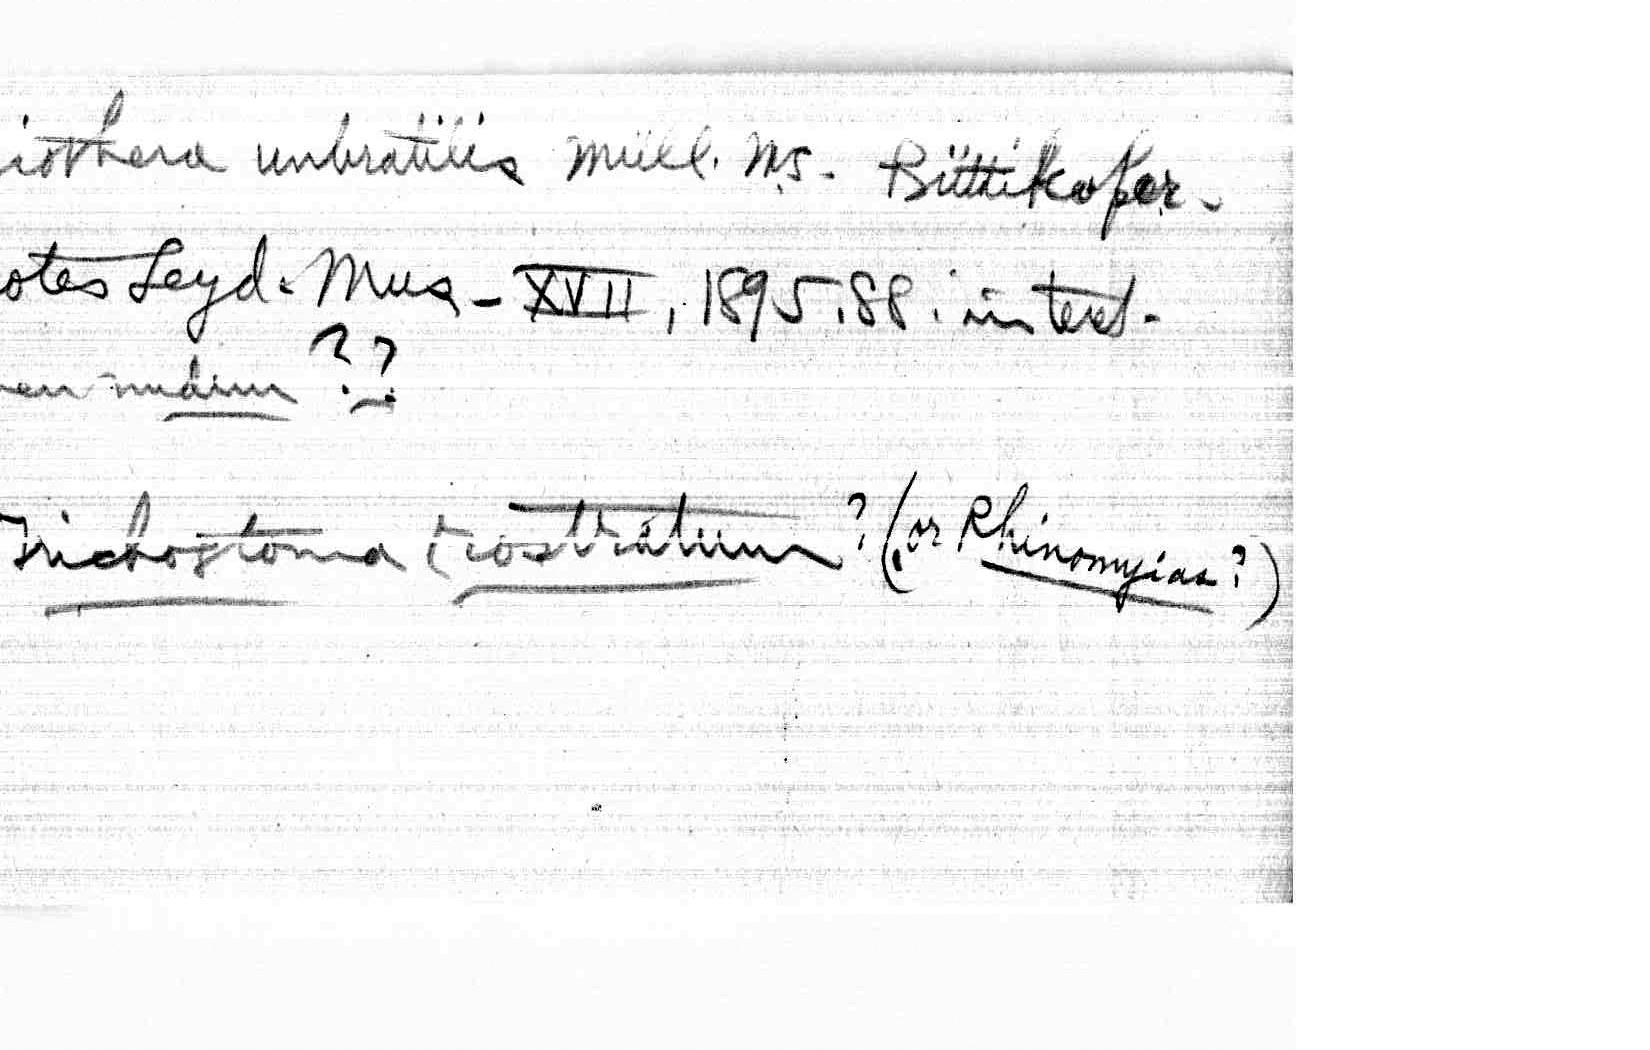 iothera umbratilis Müll. MS. Büttikofer.
otes Leyd. Mus - XVII, 1895, 88. in text.
en nudum ??
Trichostoma rostratum ? (or Rhinomyias ?)